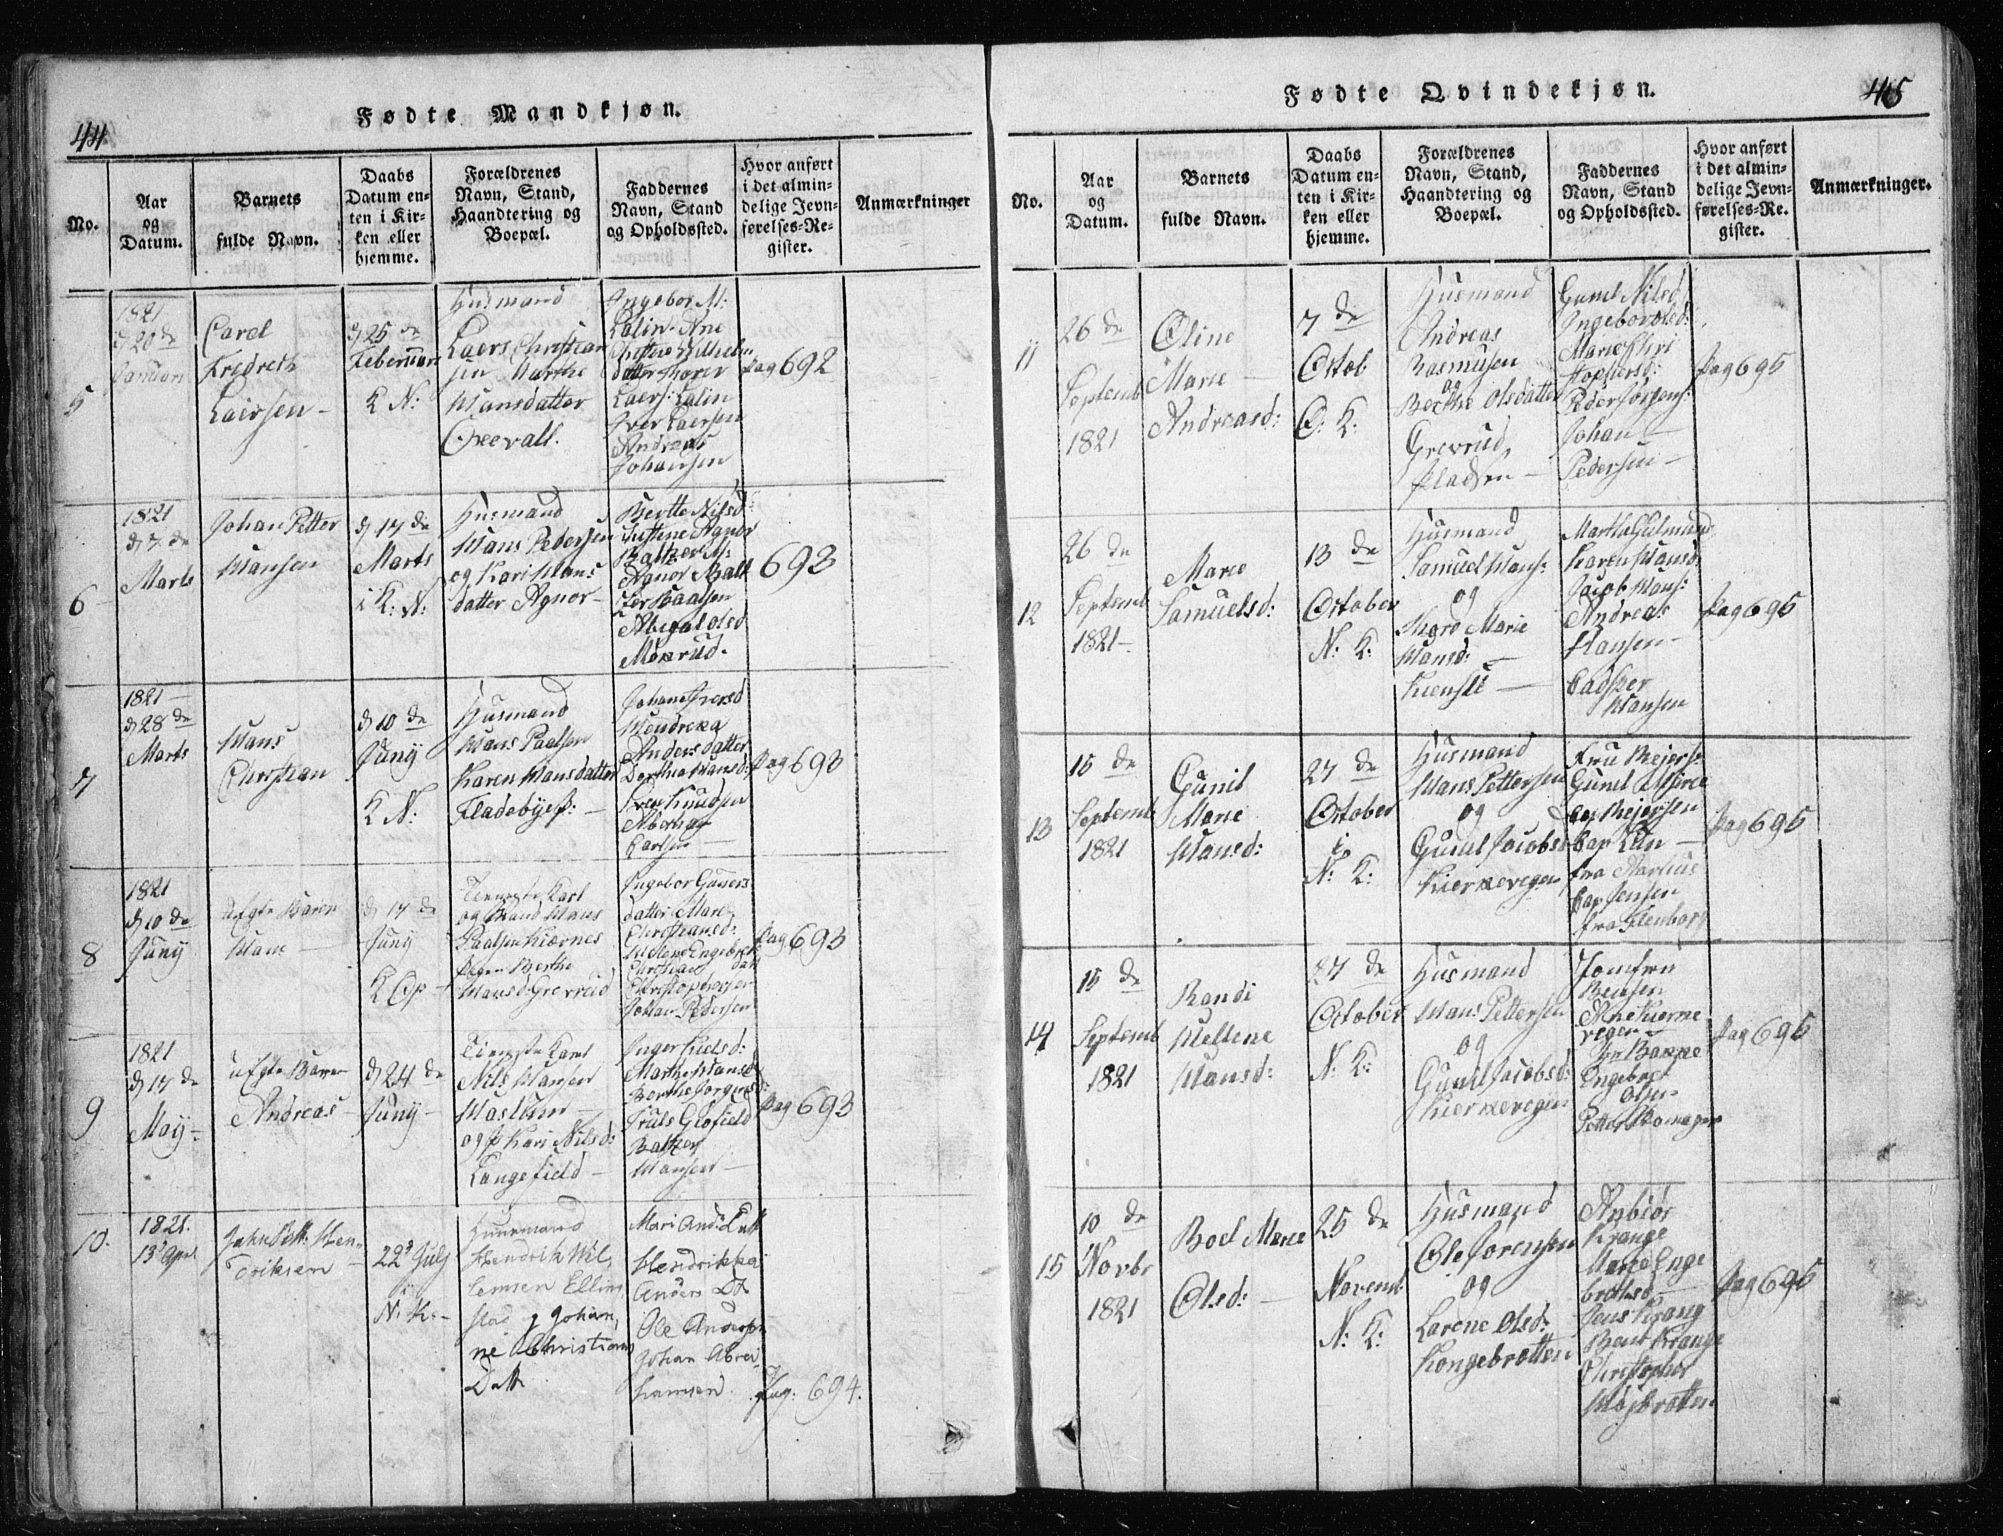 44
Fødte Mandkjøn.
No.
Aar og Datum.
Barnets fulde Navn.
Daabs Datum enten i Kirken eller hjemme.
Forældrenes Navn, Stand, Haandtering og Boepæl.
Faddernes Navn, Stand og Opholdssted.
Hvor anført i det almindelige Jevnførelses-Register.
Anmærkninger
5
1821
d 20 de
Januari
Carel
Fredreth
Lairsen
d 25 de
Februari
K N:
Husmand
Laers Christian
sen Marthe
Hansdatter
Oxevall.
Ingebor M:
Lalin. Ane
datter Thorer
Laers: Lalin
Iver Laersen
Andreas
Johansen
Pag 692
6
1821
d 7 de
Marts
Johan Petter
Hansen
d 17 de
Marts
i K: N:
Husmand
Hans Pedersen
og Kari Hans
datter Agnor
Bertte Nilsd:
Justine Agnor
Baltzer M:
Agnor Balt
zer Baalsen
Abigal Olsd
Moxrud.
693
7
1821
d 28 de
Marts
Hans
Christian
d 10 de
Juny
K N:
Husmand
Hans Paalsen
Karen Hansdatter
Fladebyef:
Johane Iversd
Hendreka
Andersdatter
Dorthea Hansd:
Iver Knudsen
Carlsen
Pag 693
8
1821
d 10 de
Juny
Uegte Baren
Hans
d 17 de
Juny
K Op
Tienneste Karl
og Mand Hans
Paalsen Kiærnes
Pigen Berthe
Hansd: Grevrud
Ingebor Guners
datter Mare
Christiansd:
Helene Engebrets
Christian datt
Christophersen
Johan Pedersen
Pag 693
9
1821
d 17 de
May
uegte Baren
Andreas
d 24 de
Juny
Tieneste Karl
Nils Hansen
Haslum
og P Kari Nilsd:
Langefield
Inger Kielsd:
Marthe Hansd
Berthe Jorgensd:
Truls Grofield
Baltzer
Hansen
Pag 693
10.
1821.
13' April
John Pett: Hen
driksen
22' July
i
N. K.
Huusmand
Hendrik Wil
lemsen Ellin
stad, Johan
ne Christians
Datt
Mari And: Datt
Hendrikka
Anders Dt
Ole Andersen
Johan Abra
hamsen
Pag: 694.
45
Fødte Qvindekjøn.
No.
Aar og Datum.
Barnets fulde Navn.
Daabs Datum enten i Kirken eller hjemme.
Forældrenes Navn, Stand, Haandtering og Boepæl.
Faddernes Navn, Stand og Opholdssted.
Hvor anført i det almindelige Jevnførelses-Register.
Anmærkninger.
11
26 de
Septemb
1821
Oline
Marie
Andreasd:
7 de
Octob
O. K.
Husmand
Andreas
Rasmusen
og
Berthe Olsdatter
Grevrud
Pladsen
Gunil Nilsd
Ingebor Olsd:
Marie Chri
stophersd:
Peder Sørgens:
Johan
Pedersen
Pag 695
12
26 de
Septemb
1821
Marie
Samuelsd:
13 de
October
N: K:
Husmand
Samuel Hans:
og
Ingrd Marie
Hansd:
Kiensli
Marthe Gulmund
Karen Hansd:
Jacob Hans:
Andreas
Hansen
Casper
Hansen
Pag 695
13
15 de
Septemb
1821
Gunil
Marie
Hansd:
27 de
October
i
N: K:
Husmand
Hans Pettersen
og
Gunil Jacobsd
Kierkevegen
Fru Meiers:
Cap Meiersen
Cap Lun
Cap Jensen
fra Flenborg
Pag 695
14
15 de
Septemb
1821
Randi
Hellene
Hansd:
27 de
October
N: K:
Husmand
Hans Pettersen
og
Gunil Jacobsd:
Kierkevegen
Jomfru
Bensen
Ane Kierke
vegen
Engebret
Olsen
Petter Romager
Pag 695
15
10 de
Novbr
1821
Boel Marie
Olsd:
25 de
Novemb:
N: K:
Husmand
Ole Sørensen
og
Larene Olsd:
Kongebrotten
Anbiør
Krange
Marie Enge
bretsd
Jens Krang
Bent Krange
Christopher
Høgbrotten
Pag 695